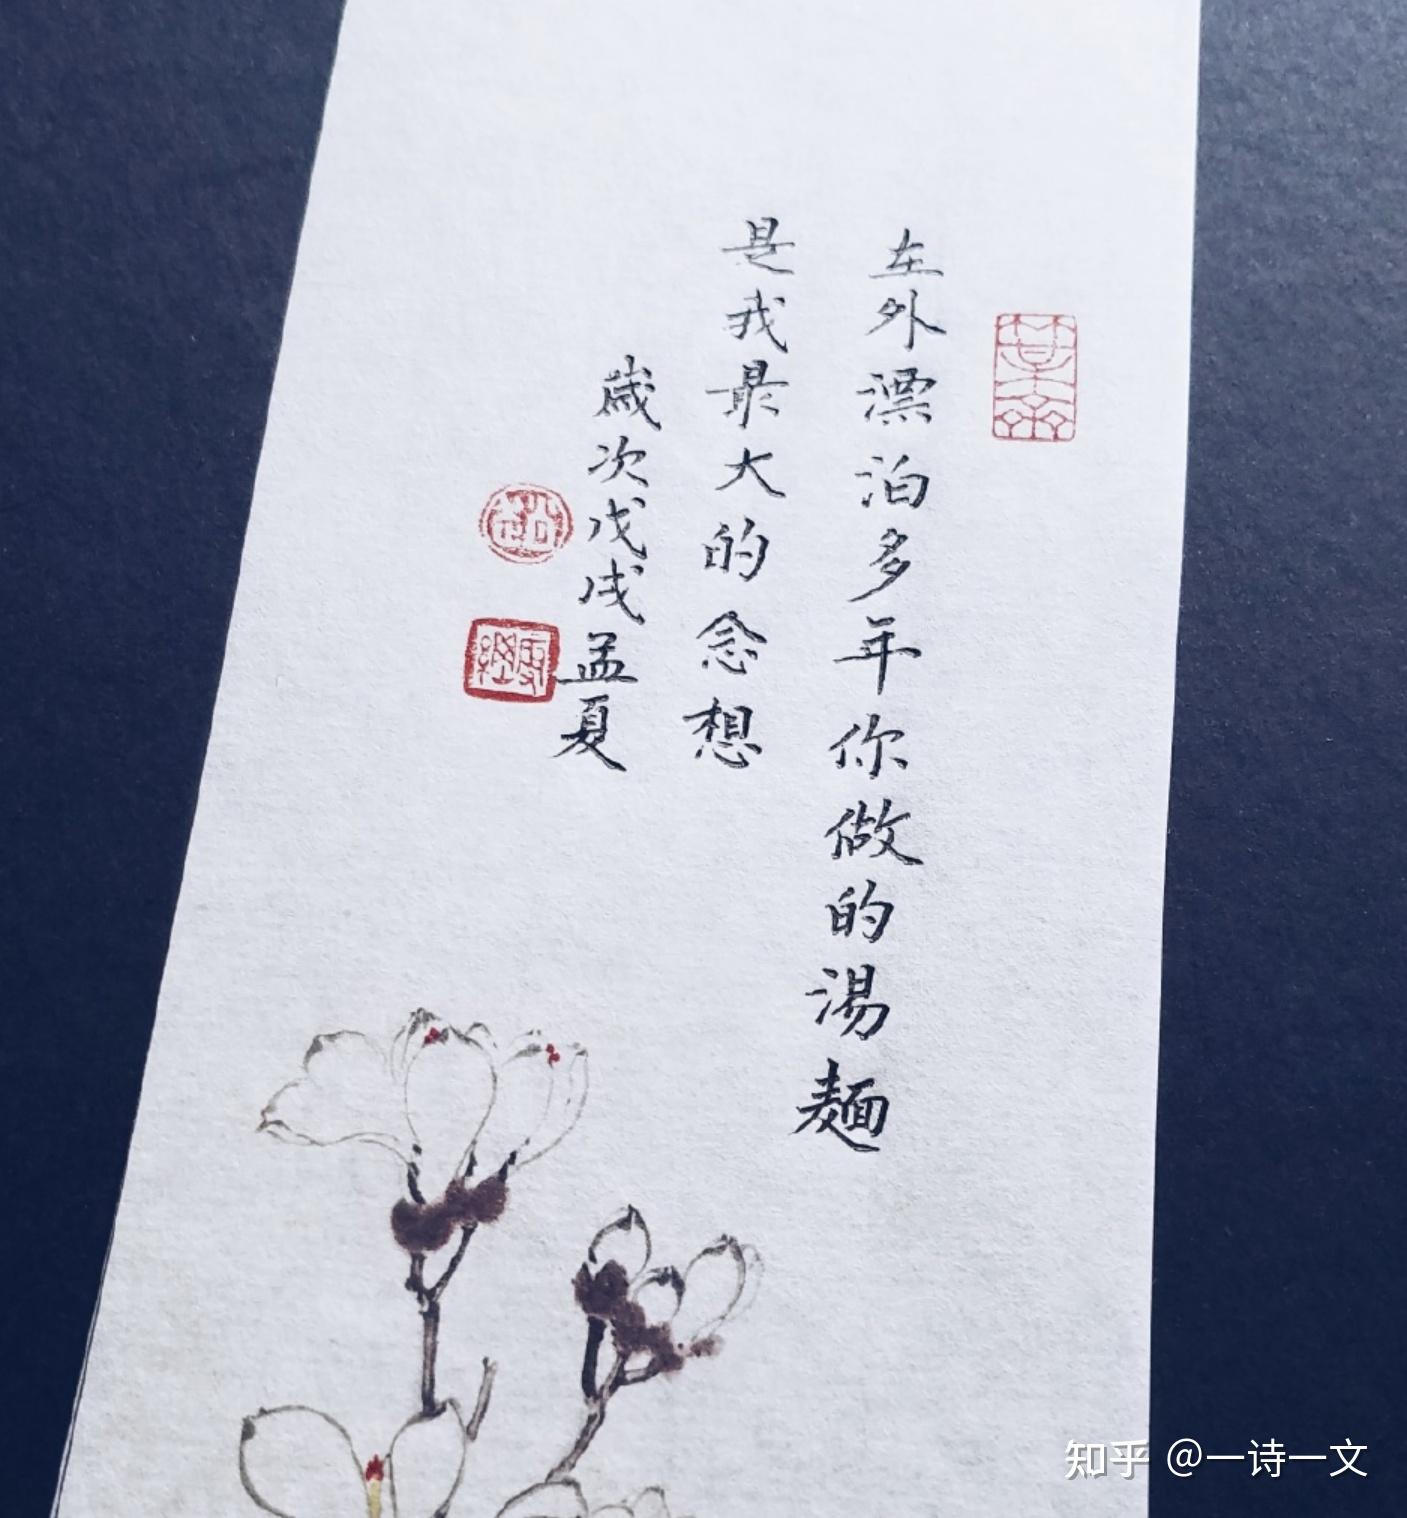 在外漂泊多年你做的湯麵
是我最大的念想
歲次戊戌孟夏
知乎 @一诗一文